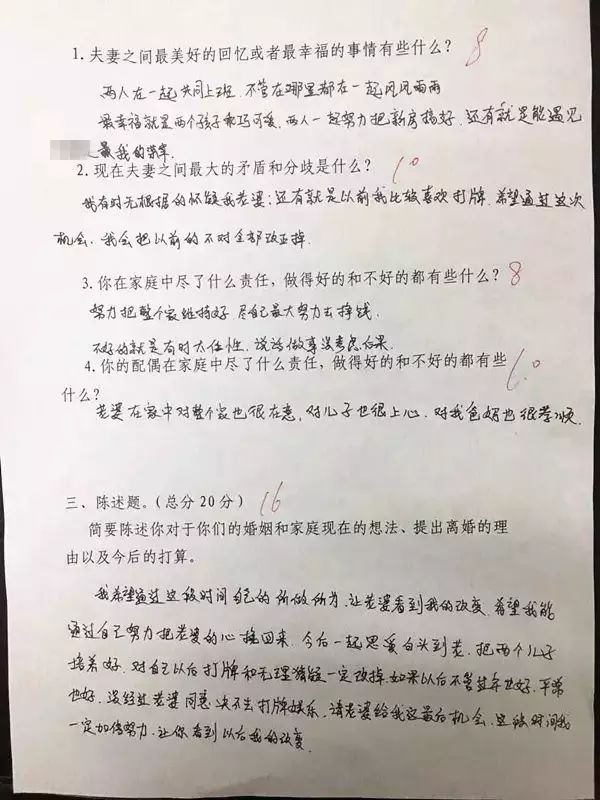 1.夫妻之间最美好的回忆或者最幸福的事情有些什么? 8
两人在一起共同上班.不管在哪里都在一起风风雨雨
最幸福就是两个孩子乖巧可爱.两人一起努力把新房搞好.还有就是能遇见
是我的荣幸.
2.现在夫妻之间最大的矛盾和分歧是什么? 10
我有时无根据的怀疑我老婆;还有就是以前我比较喜欢打牌.希望通过这次
机会.我会把以前的不对全部改正掉.
3.你在家庭中尽了什么责任,做得好的和不好的都有些什么? 8
努力把整个家维持好.尽自己最大努力去挣钱.
不好的就是有时太任性.说话做事没考虑后果.
4.你的配偶在家庭中尽了什么责任,做得好的和不好的都有些 10
什么?
老婆在家中对整个家也很在意.对儿子也很上心.对我爸妈也很孝顺.
三、陈述题。(总分20分) 16
简要陈述你对于你们的婚姻和家庭现在的想法、提出离婚的理
由以及今后的打算。
我希望通过这段时间自己的所做所为.让老婆看到我的改变.希望我能
通过自己努力把老婆的心挽回来.今后一起恩爱白头到老.把两个儿子
培养好.对自己以后打牌和无理猜疑一定改掉.如果以后不管过年也好.平常
也好.没经过老婆同意决不去打牌娱乐.请老婆给我这最后机会.这段时间我
一定加倍努力.让你看到以后我的改变.